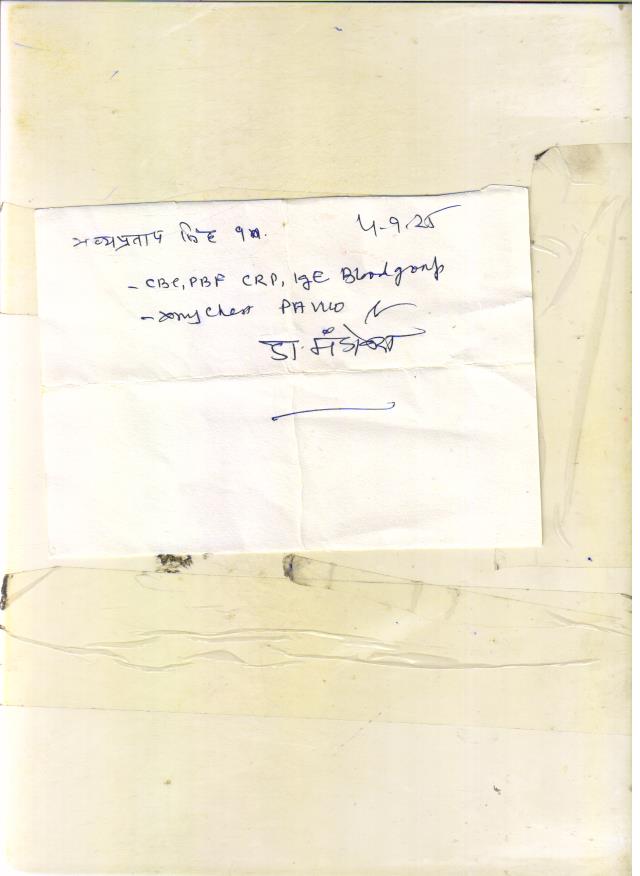 भव्यप्रताप सिंह 5-9-25
- CBC, PBF CRP, IgE Blood group
- xray Chest PA view
डा. मंडोवरा